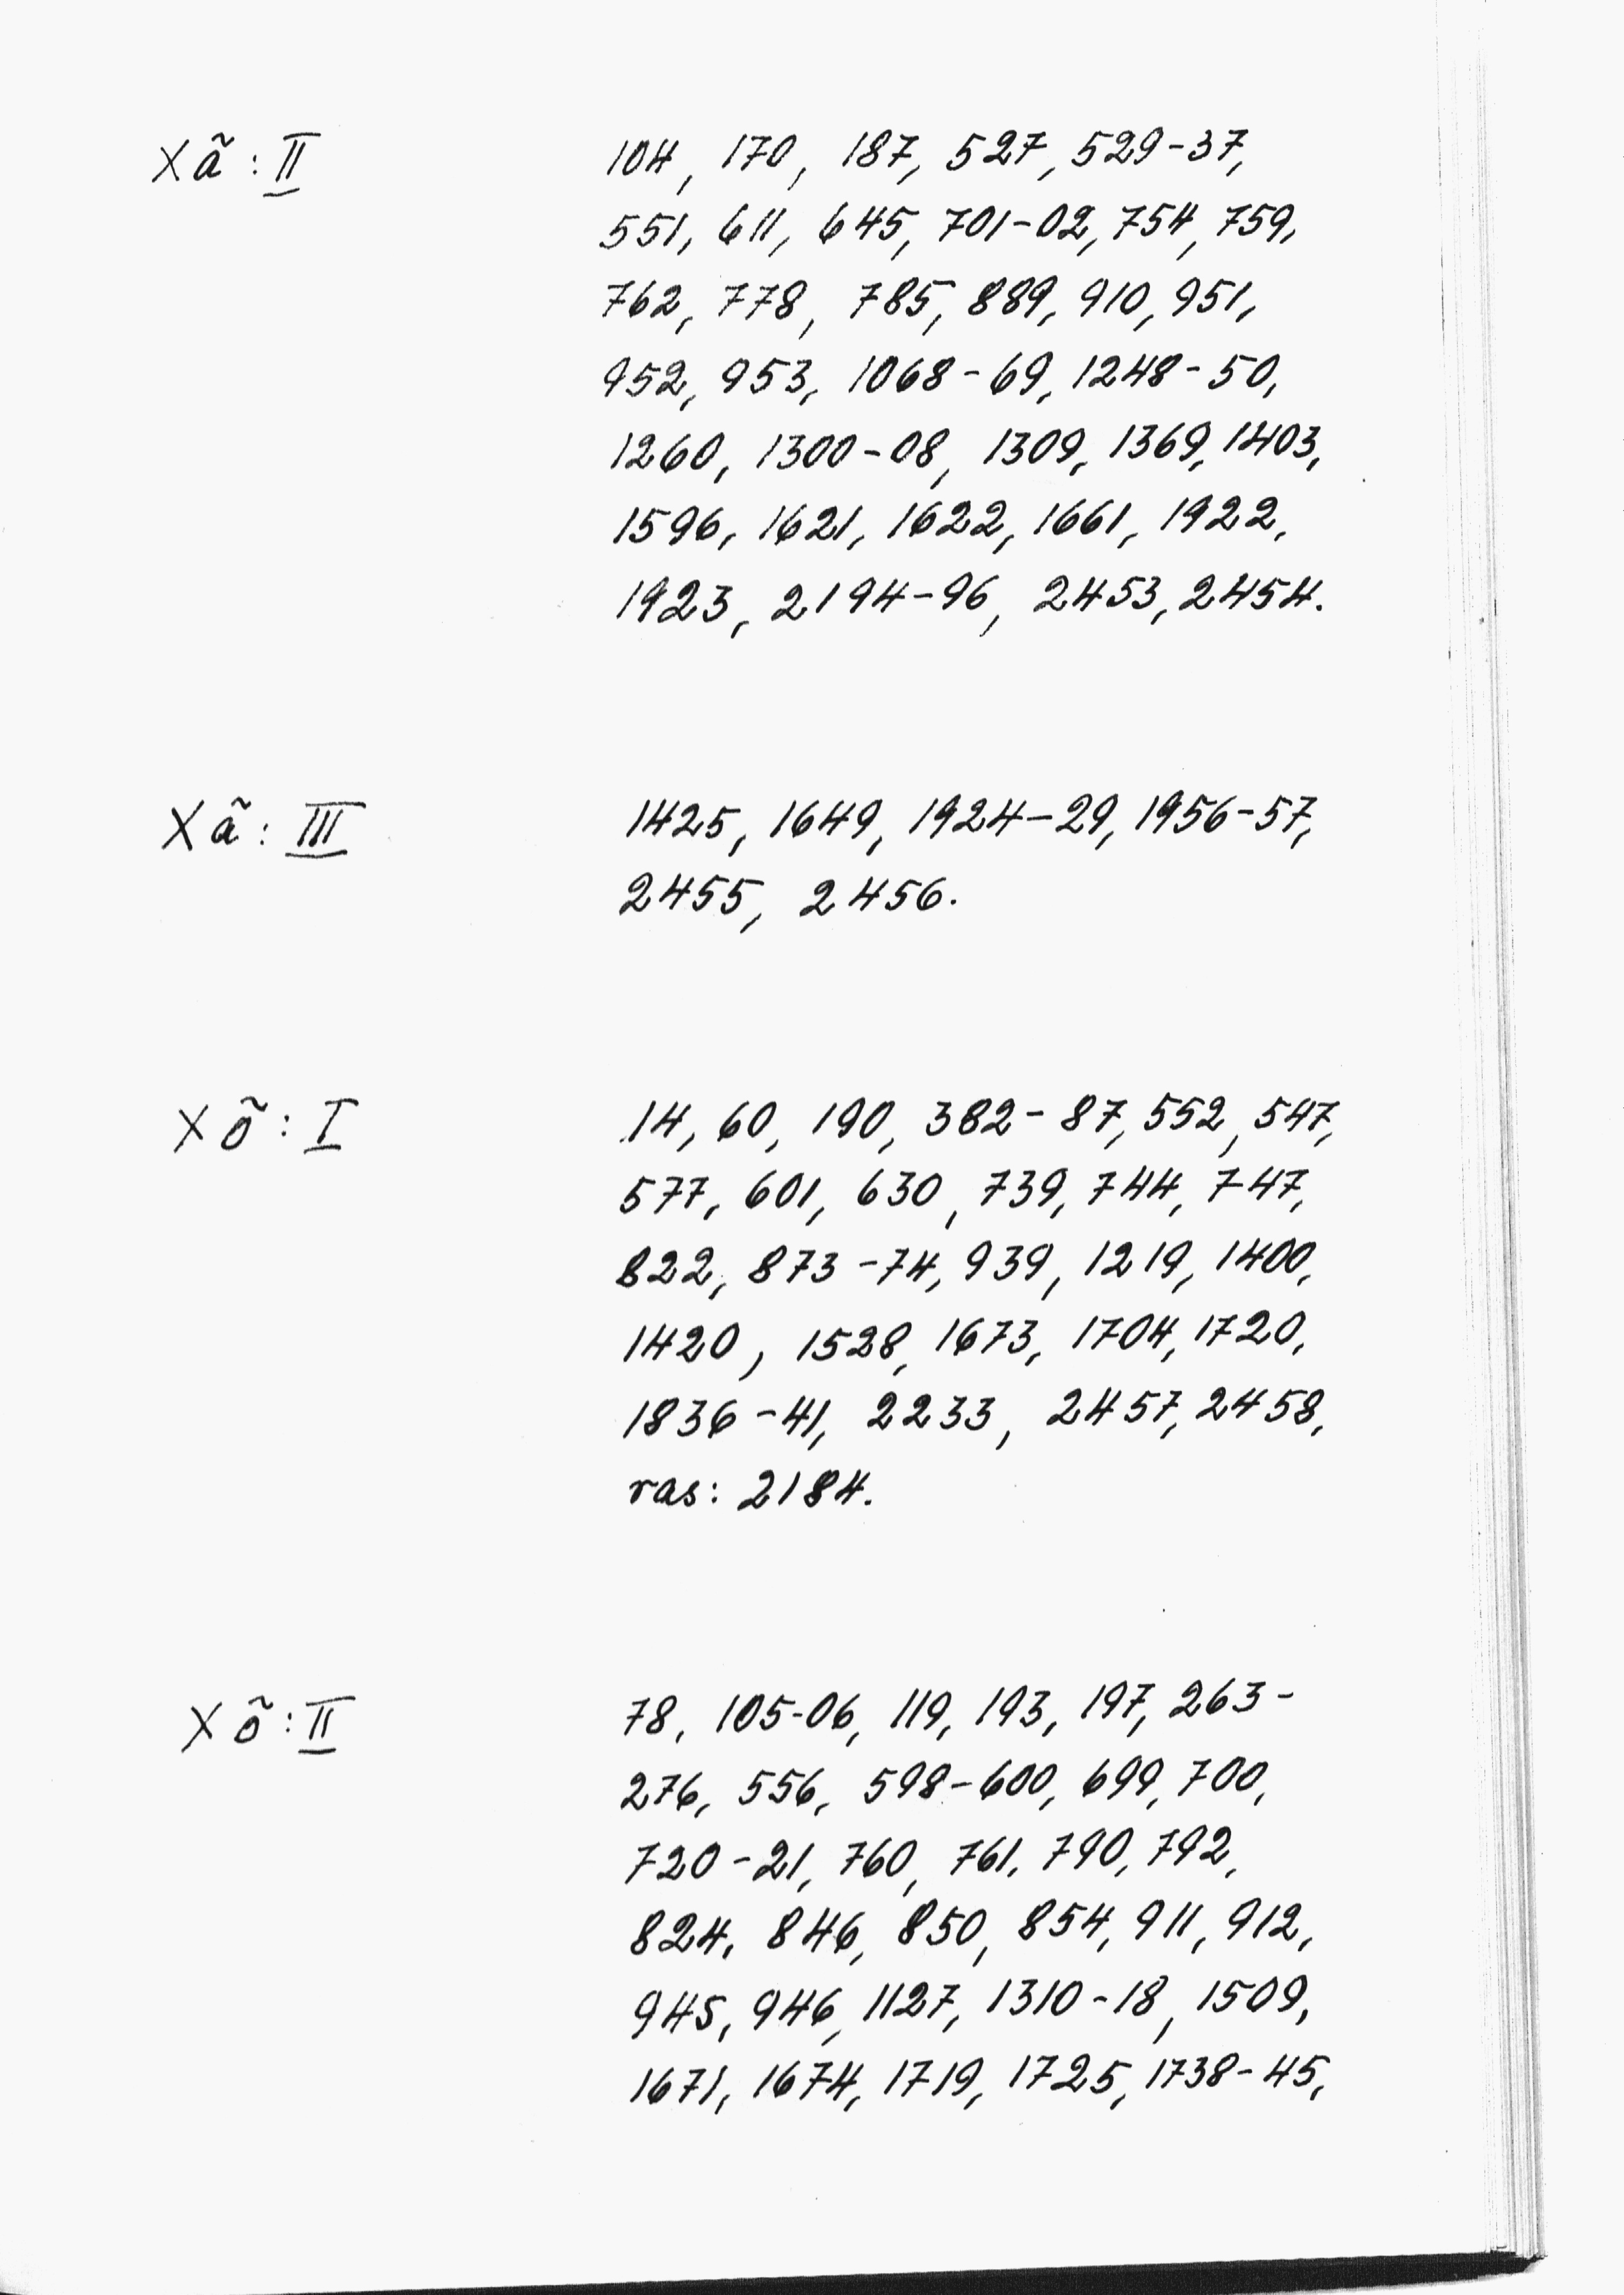 Xã : II 104, 170, 187, 527, 529-37,
551, 611, 645, 701-02, 754, 759,
762, 778, 785, 889, 910, 951,
952, 953, 1068-69, 1248-50,
1260, 1300-08, 1309, 1369, 1403,
1596, 1621, 1622, 1661, 1922,
1923, 2194-96, 2453, 2454.
Xã : III 1425, 1649, 1924-29, 1956-57,
2455, 2456.
Xõ : I 14, 60, 190, 382-87, 552, 547,
577, 601, 630, 739, 744, 747,
822, 873-74, 939, 1219, 1400,
1420, 1528, 1673, 1704, 1720,
1836-41, 2233, 2457, 2458,
ras: 2184.
Xõ : II 78, 105-06, 119, 193, 197, 263-
276, 556, 598-600, 699, 700,
720-21, 760, 761, 790, 792,
824, 846, 850, 854, 911, 912,
945, 946, 1127, 1310-18, 1509,
1671, 1674, 1719, 1725, 1738-45,